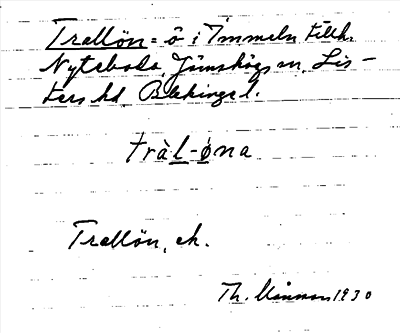 Trallön = ö i Immeln tillh.
Nyteboda, Jämshögs sn, Lis-
ters hd Blekinge l.
tràl-øna
Trallön, ek.
Th. 1930